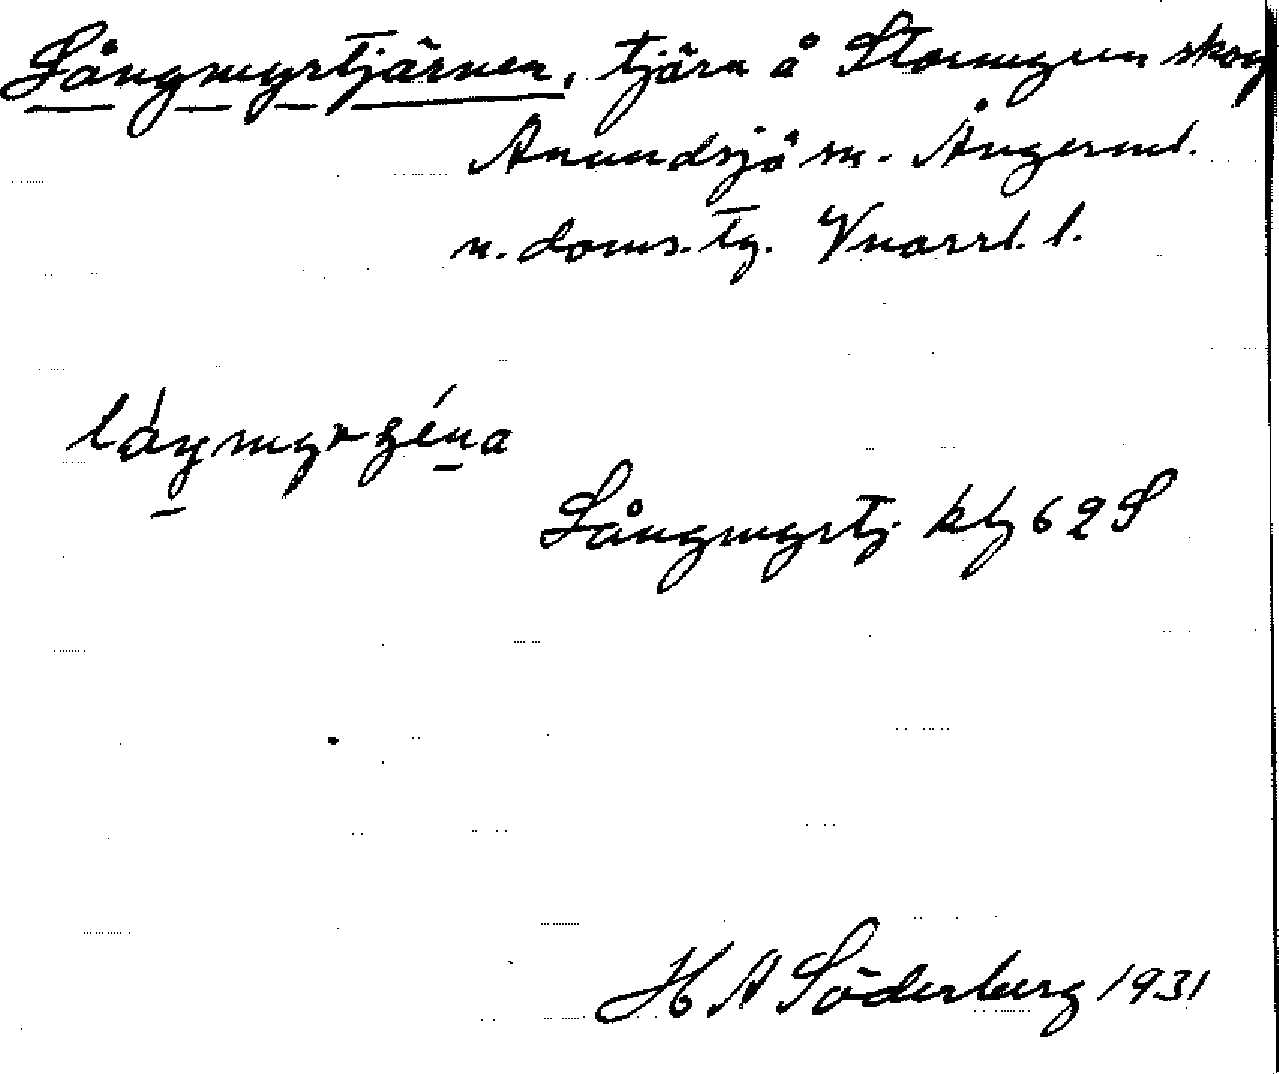 Långmyrtjärnen, tjärn å Stormyren skog
Anundsjö sn. Ångerml.
n. doms. tg. Vnorrl. l.
Långmyrtj. kbl 62 S
H A Söderberg 1931